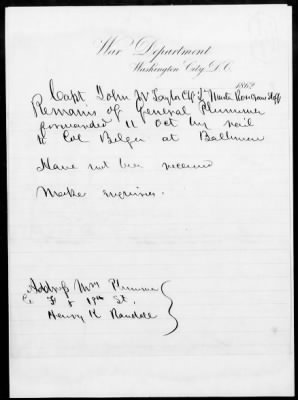 War Department
Washington City, D.C.
1862
Capt John W Taylor Chf Qr Master Rosecrans Staff
Remains of General Plummer
forwarded 11 Oct by rail
to Col Belger at Baltimore
Have not been received
Make enquiries.
Address Mrs Plummer
F & 18th St.
Henry K Randall